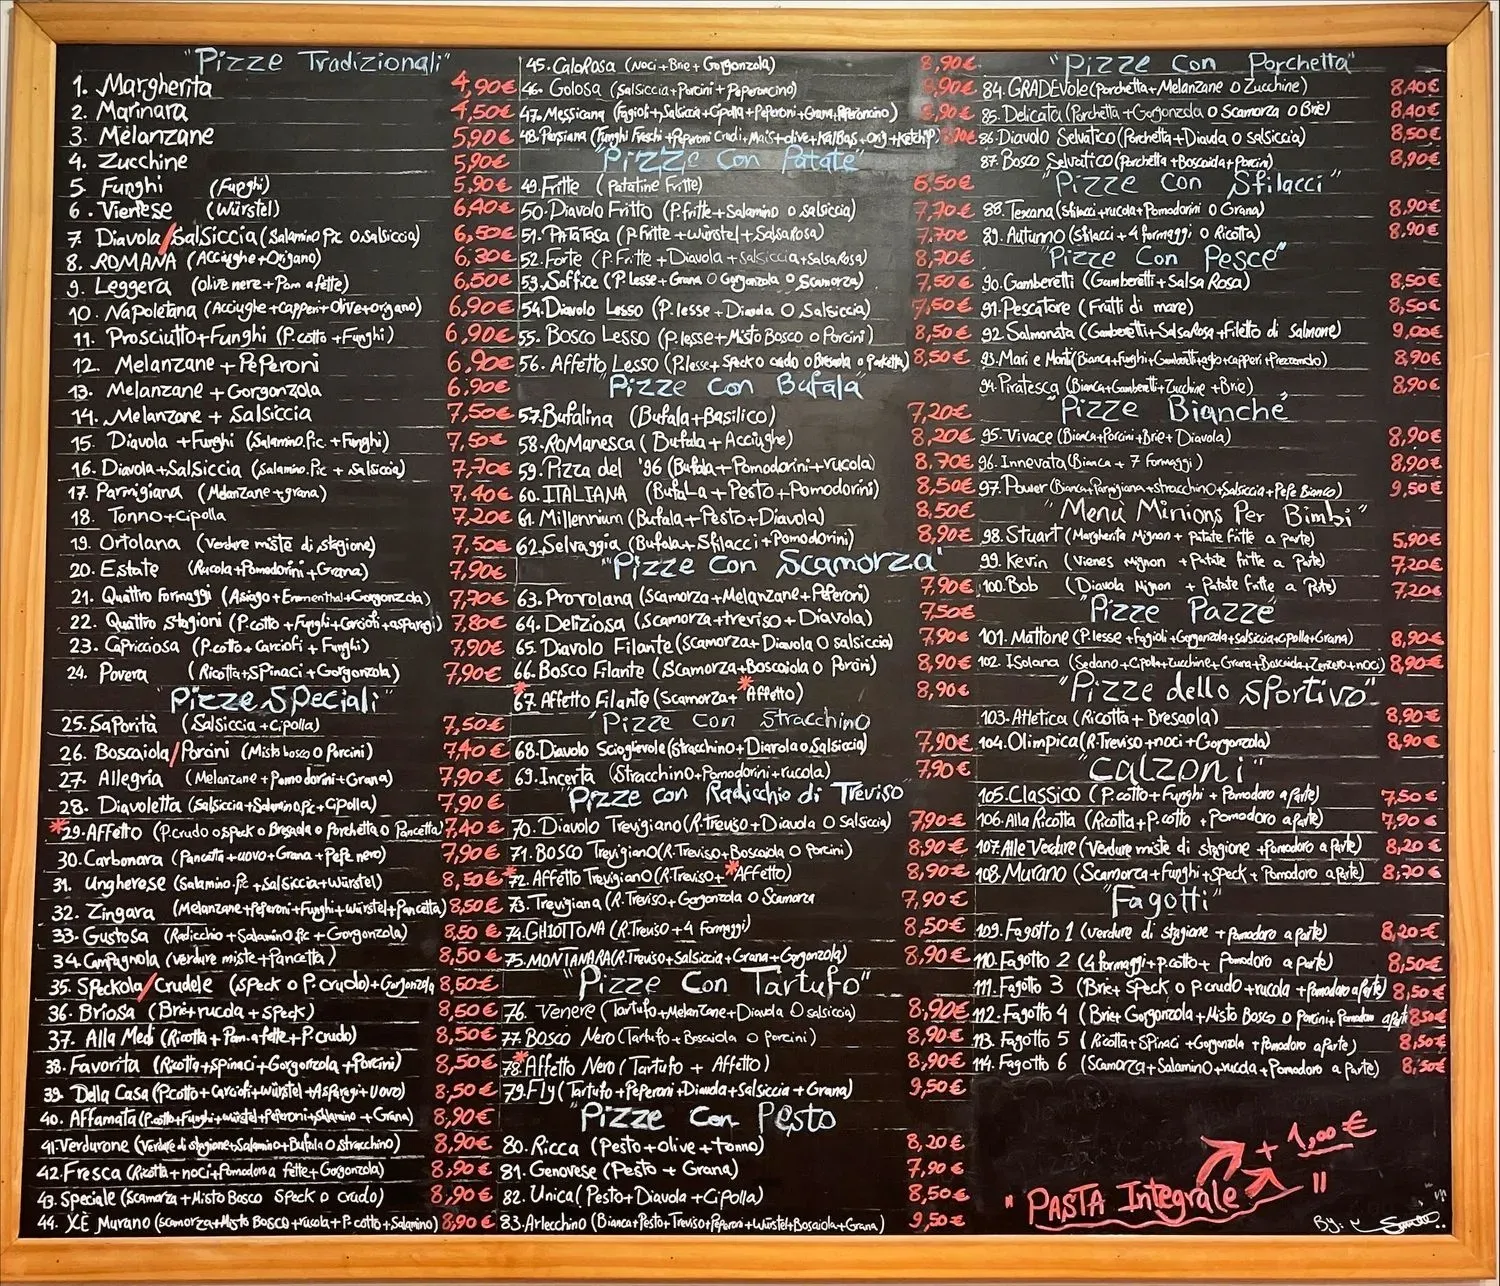 "Pizze Tradizionali"
1. Margherita 4,90€
2. Marinara 4,50€
3. Melanzane 5,90€
4. Zucchine 5,90€
5. Funghi (Funghi) 5,90€
6. Viennese (Würstel) 6,40€
7. Diavola/Salsiccia (Salamino Pic O salsiccia) 6,50€
8. ROMANA (Acciughe+Origano) 6,30€
9. Leggera (olive nere+Pom a fette) 6,50€
10. Napoletana (Acciughe+capperi+Olive+origano) 6,90€
11. Prosciutto+Funghi (P.cotto+Funghi) 6,90€
12. Melanzane+Peperoni 6,90€
13. Melanzane+Gorgonzola 6,90€
14. Melanzane+Salsiccia 7,50€
15. Diavola+Funghi (Salamino.Pic+Funghi) 7,50€
16. Diavola+Salsiccia (Salamino.Pic+salsiccia) 7,70€
17. Parmigiana (Melanzane+grana) 7,40€
18. Tonno+cipolla 7,20€
19. Ortolana (verdure miste di stagione) 7,50€
20. Estate (Rucola+Pomodorini+Grana) 7,90€
21. Quattro Formaggi (Asiago+Emmenthal+Gorgonzola) 7,70€
22. Quattro stagioni (P.cotto+Funghi+Carciofi+asparagi) 7,80€
23. Capricciosa (P.cotto+Carciofi+Funghi) 7,90€
24. Povera (Ricotta+Spinaci+Gorgonzola) 7,90€
"Pizze Speciali"
25. Saporita (Salsiccia+Cipolla) 7,50€
26. Boscaiola/Porcini (Misto bosco O Porcini) 7,40€
27. Allegria (Melanzane+Pomodorini+Grana) 7,90€
28. Diavoletta (Salsiccia+Salamino Pic+Cipolla) 7,90€
*29. Affetto (P.crudo o Speck o Bresaola o Porchetta o Pancetta) 7,40€
30. Carbonara (Pancetta+uovo+Grana+Pepe nero) 7,90€
31. Ungherese (Salamino.Pic+Salsiccia+Würstel) 8,50€
32. Zingara (Melanzane+Peperoni+Funghi+Würstel+Pancetta) 8,50€
33. Gustosa (Radicchio+Salamino pic+Gorgonzola) 8,50€
34. Campagnola (verdure miste+Pancetta) 8,50€
35. Speckola/Crudele (Speck O P.crudo)+Gorgonzola 8,50€
36. Briosa (Brie+rucola+Speck) 8,50€
37. Alla Medi (Ricotta+Pom.a fette+P.crudo) 8,50€
38. Favorita (Ricotta+spinaci+Gorgonzola+Porcini) 8,50€
39. Della Casa (P.cotto+Carciofi+Würstel+Asparagi+Uovo) 8,50€
40. Affamata (P.cotto+Funghi+würstel+Peperoni+Salamino+Grana) 8,90€
41. Verdurone (Verdure di stagione+Salamino+Bufala O stracchino) 8,90€
42. Fresca (Ricotta+noci+Pomodoro a fette+Gorgonzola) 8,90€
43. Speciale (Scamorza+Misto Bosco Speck o crudo) 8,90€
44. XÈ Murano (scamorza+Misto Bosco+rucola+P.cotto+Salamino) 8,90€
45. Calorosa (Noci+Brie+Gorgonzola) 8,90€
46. Golosa (Salsiccia+Porcini+Peperoncino) 8,90€
47. Messicana (Fagioli+Salsiccia+Cipolla+Peperoni+Grana+Peperoncino) 8,90€
48. Persiana (Funghi Freschi+Peperoni Crudi+Mais+olive+Kalbas+Orig+Ketchup)
"Pizze Con Patate"
49. Fritte (Patatine Fritte) 6,50€
50. Diavolo Fritto (P.fritte+Salamino O salsiccia) 7,70€
51. Patatosa (P.Fritte+Würstel+SalsaRosa) 7,70€
52. Forte (P.Fritte+Diavola+Salsiccia+SalsaRosa) 8,70€
53. Soffice (P.lesse+Grana O Gorgonzola O Scamorza) 7,50€
54. Diavolo Lesso (P.lesse+Diavola O Salsiccia) 7,50€
55. Bosco Lesso (P.lesse+Misto Bosco O Porcini) 8,50€
56. Affetto Lesso (P.lesse+Speck o crudo o Bresaola o Porchetta) 8,50€
"Pizze con Bufala"
57. Bufalina (Bufala+Basilico) 7,20€
58. Romanesca (Bufala+Acciughe) 8,20€
59. Pizza del '96 (Bufala+Pomodorini+rucola) 8,70€
60. ITALIANA (Bufala+Pesto+Pomodorini) 8,50€
61. Millennium (Bufala+Pesto+Diavola) 8,50€
62. Selvaggia (Bufala+Sfilacci+Pomodorini) 8,90€
"Pizze Con Scamorza"
63. Provolana (Scamorza+Melanzane+Peperoni) 7,90€
64. Deliziosa (Scamorza+treviso+Diavola) 7,50€
65. Diavolo Filante (Scamorza+Diavola O salsiccia) 7,90€
66. Bosco Filante (Scamorza+Boscaiola O Porcini) 8,90€
*67. Affetto Filante (Scamorza+*Affetto) 8,90€
"Pizze Con Stracchino
68. Diavolo Scioglievole (Stracchino+Diavola o Salsiccia) 7,90€
69. Incerta (Stracchino+Pomodorini+rucola) 7,90€
"Pizze con Radicchio di Treviso"
70. Diavolo Trevigiano (R.Treviso+Diavola O salsiccia) 7,90€
71. BOSCO Trevigiano (R.Treviso+Boscaiola O Porcini) 8,90€
*72. Affetto Trevigiano (R.Treviso+*Affetto) 8,90€
73. Trevigiana (R.Treviso+Gorgonzola O Scamorza 7,90€
74. GHIOTTONA (R.Treviso+4 Formaggi) 8,50€
75. MONTANARA (R.Treviso+Salsiccia+Grana+Gorgonzola) 8,90€
"Pizze Con Tartufo"
76. Venere (Tartufo+Melanzane+Diavola O salsiccia) 8,90€
77. BOSCO Nero (Tartufo+Boscaiola O Porcini) 8,90€
*78. Affetto Nero (Tartufo+Affetto) 8,90€
79. Fly (Tartufo+Peperoni+Diavola+Salsiccia+Grana) 9,50€
"Pizze Con Pesto
80. Ricca (Pesto+olive+tonno) 8,20€
81. Genovese (Pesto+Grana) 7,90€
82. Unica (Pesto+Diavola+Cipolla) 8,50€
83. Arlecchino (Bianca+Pesto+Treviso+Peperoni+Würstel+Boscaiola+Grana) 9,50€
"Pizze Con Porchetta"
84. GRADEVole (Porchetta+Melanzane O Zucchine) 8,40€
85. Delicata (Porchetta+Gorgonzola O Scamorza O Brie) 8,40€
86. Diavolo Selvatico (Porchetta+Diavola O salsiccia) 8,50€
87. Bosco Selvatico (Porchetta+Boscaiola+Porcini) 8,90€
"Pizze Con Sfilacci"
88. Texana (sfilacci+rucola+Pomodorini O Grana) 8,90€
89. Autunno (Sfilacci+4 formaggi O Ricotta) 8,90€
"Pizze Con Pesce"
90. Gamberetti (Gamberetti+Salsa Rosa) 8,50€
91. Pescatore (Frutti di mare) 8,50€
92. Salmonata (Gamberetti+SalsaRosa+Filetto di salmone) 9,00€
93. Mari e Monti (Bianca+Funghi+Gamberetti+aglio+capperi+Prezzemolo) 8,90€
94. Piratesca (Bianca+Gamberetti+Zucchine+Brie) 8,90€
"Pizze Bianche"
95. Vivace (Bianca+Porcini+Brie+Diavola) 8,90€
96. Innevata (Bianca+7 Formaggi) 8,90€
97. Power (Bianca+Parmigiana+stracchino+Salsiccia+Pepe Bianco) 9,50€
"Menù Minions Per Bimbi"
98. Stuart (Margherita Mignon+Patate fritte a parte) 5,90€
99. Kevin (Vienes Mignon+Patate fritte a Parte) 7,20€
100. Bob (Diavola Mignon+Patate Fritte a Parte) 7,20€
"Pizze Pazze"
101. Mattone (P.lesse+Fagioli+Gorgonzola+salsiccia+cipolla+Grana) 8,90€
102. Isolana (Sedano+Cipolla+Zucchine+Grana+Boscaiola+Zenzero+noci) 8,90€
"Pizze dello Sportivo"
103. Atletica (Ricotta+Bresaola) 8,90€
104. Olimpica (R.Treviso+noci+Gorgonzola) 8,90€
"Calzoni"
105. Classico (P.cotto+Funghi+Pomodoro a Parte) 7,50€
106. Alla Ricotta (Ricotta+P.cotto+Pomodoro a parte) 7,90€
107. Alle Verdure (Verdure miste di stagione+Pomodoro a Parte) 8,20€
108. Murano (Scamorza+Funghi+Speck+Pomodoro a Parte) 8,70€
"Fagotti"
109. Fagotto 1 (verdure di stagione+Pomodoro a parte) 8,20€
110. Fagotto 2 (4 formaggi+P.cotto+Pomodoro a Parte) 8,50€
111. Fagotto 3 (Brie+Speck O P.crudo+rucola+Pomodoro a Parte) 8,50€
112. Fagotto 4 (Brie+Gorgonzola+Misto Bosco O Porcini+Pomodoro a Parte 8,50€
113. Fagotto 5 (Ricotta+Spinaci+Gorgonzola+Pomodoro a Parte) 8,50€
114. Fagotto 6 (Scamorza+Salamino+rucola+Pomodoro a Parte) 8,50€
+ 1,00€
"PASTA Integrale"
By: